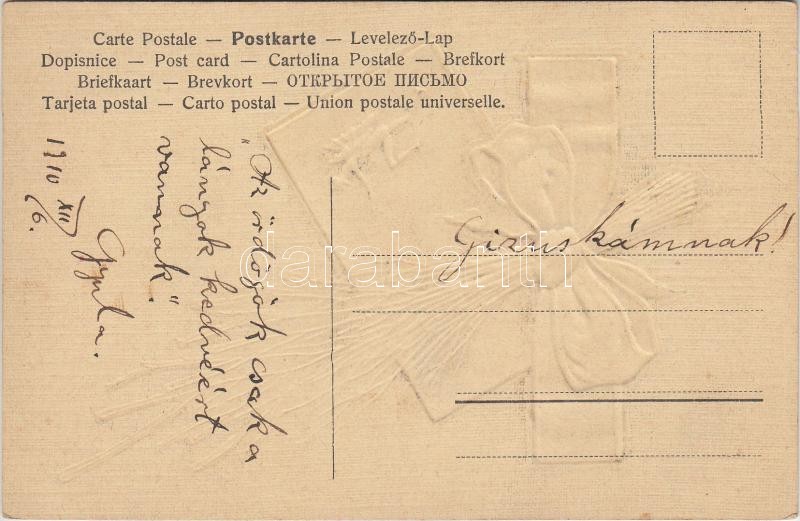 Carte Postale — Postkarte — Levelező-Lap
Dopisnice — Post card — Cartolina Postale — Brefkort
Briefkaart — Brevkort — ОТКРЫТОЕ ПИСЬМО
Tarjeta postal — Carto postal — Union postale universelle.
"Az ördögök csak a
lányok kedvéért
vannak".
Gyula.
1910 XII/6.
Gizuskámnak!
darabanth